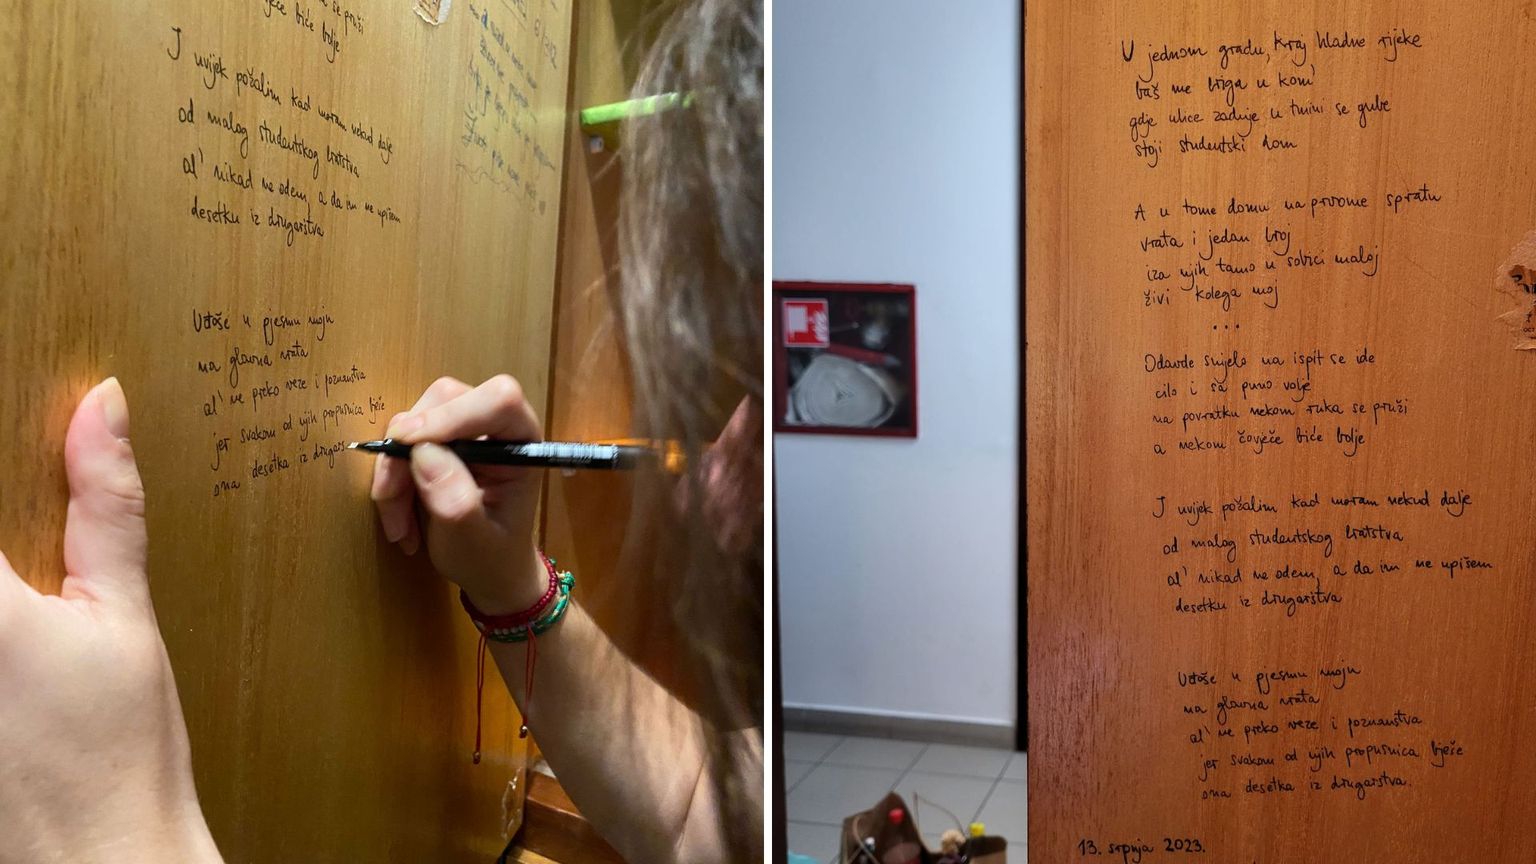 se pruži
biće bolje
I uvijek požalim kad moram nekud dalje
od malog studentskog bratstva
al' nikad ne odem, a da im ne upišem
desetku iz drugarstva
Uđoše u pjesmu moju
na glavna vrata
al' ne preko veze i poznanstva
jer svakom od njih propusnica bješe
ona desetka iz drugars
U jednom gradu, kraj hladne rijeke
baš me briga u kom'
gdje ulice zadnje u tmini se gube
stoji studentski dom
A u tome domu na prvome spratu
vrata i jedan broj
iza njih tamo u sobici maloj
živi kolega moj
...
Odavde svijelo na ispit se ide
cilo i sa puno volje
na povratku nekom ruka se pruži
a nekom čovječe biće bolje
I uvijek požalim kad moram nekud dalje
od malog studentskog bratstva
al' nikad ne odem, a da im ne upišem
desetku iz drugarstva
Uđoše u pjesmu moju
na glavna vrata
al' ne preko veze i poznanstva
jer svakom od njih propusnica bješe
ona desetka iz drugarstva.
13. srpnja 2023.